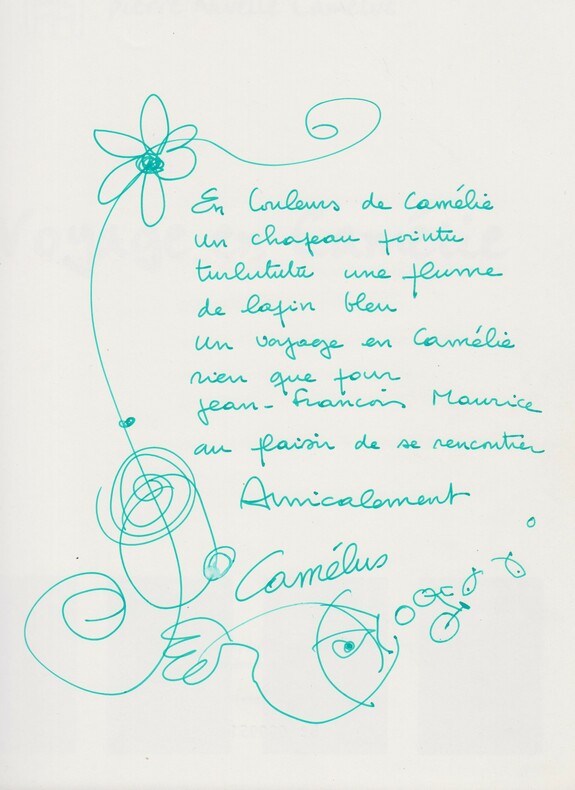 En Couleurs de Camélie
un chapeau pointu
turlututu une plume
de lapin bleu
un voyage en Camélie
rien que pour
Jean-François Maurice
au plaisir de se rencontrer
Amicalement
Camélus